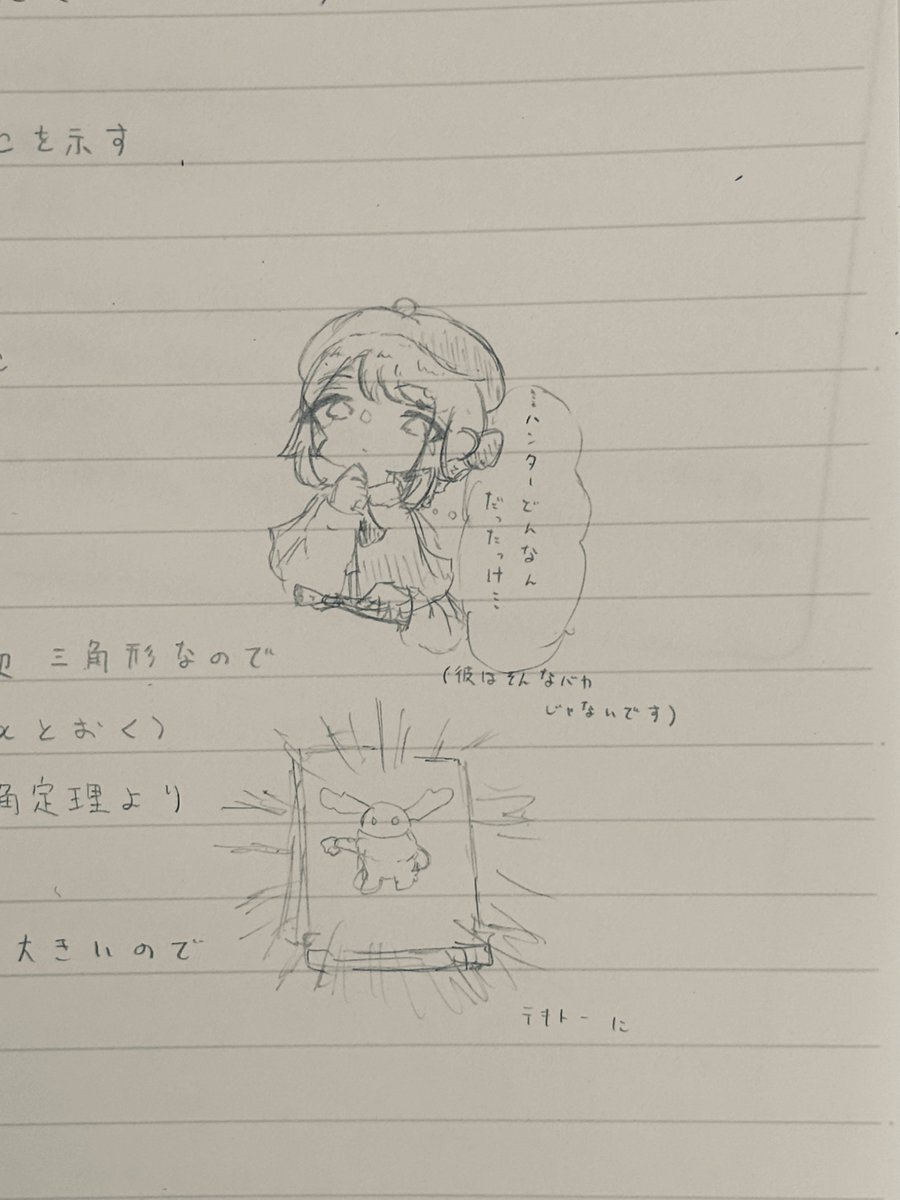 を示す
…ハンターどんなん
だったっけ…
三角形なので
(彼はそんなバカ
じゃないです)
とおく)
角定理より
大きいので
テキトーに